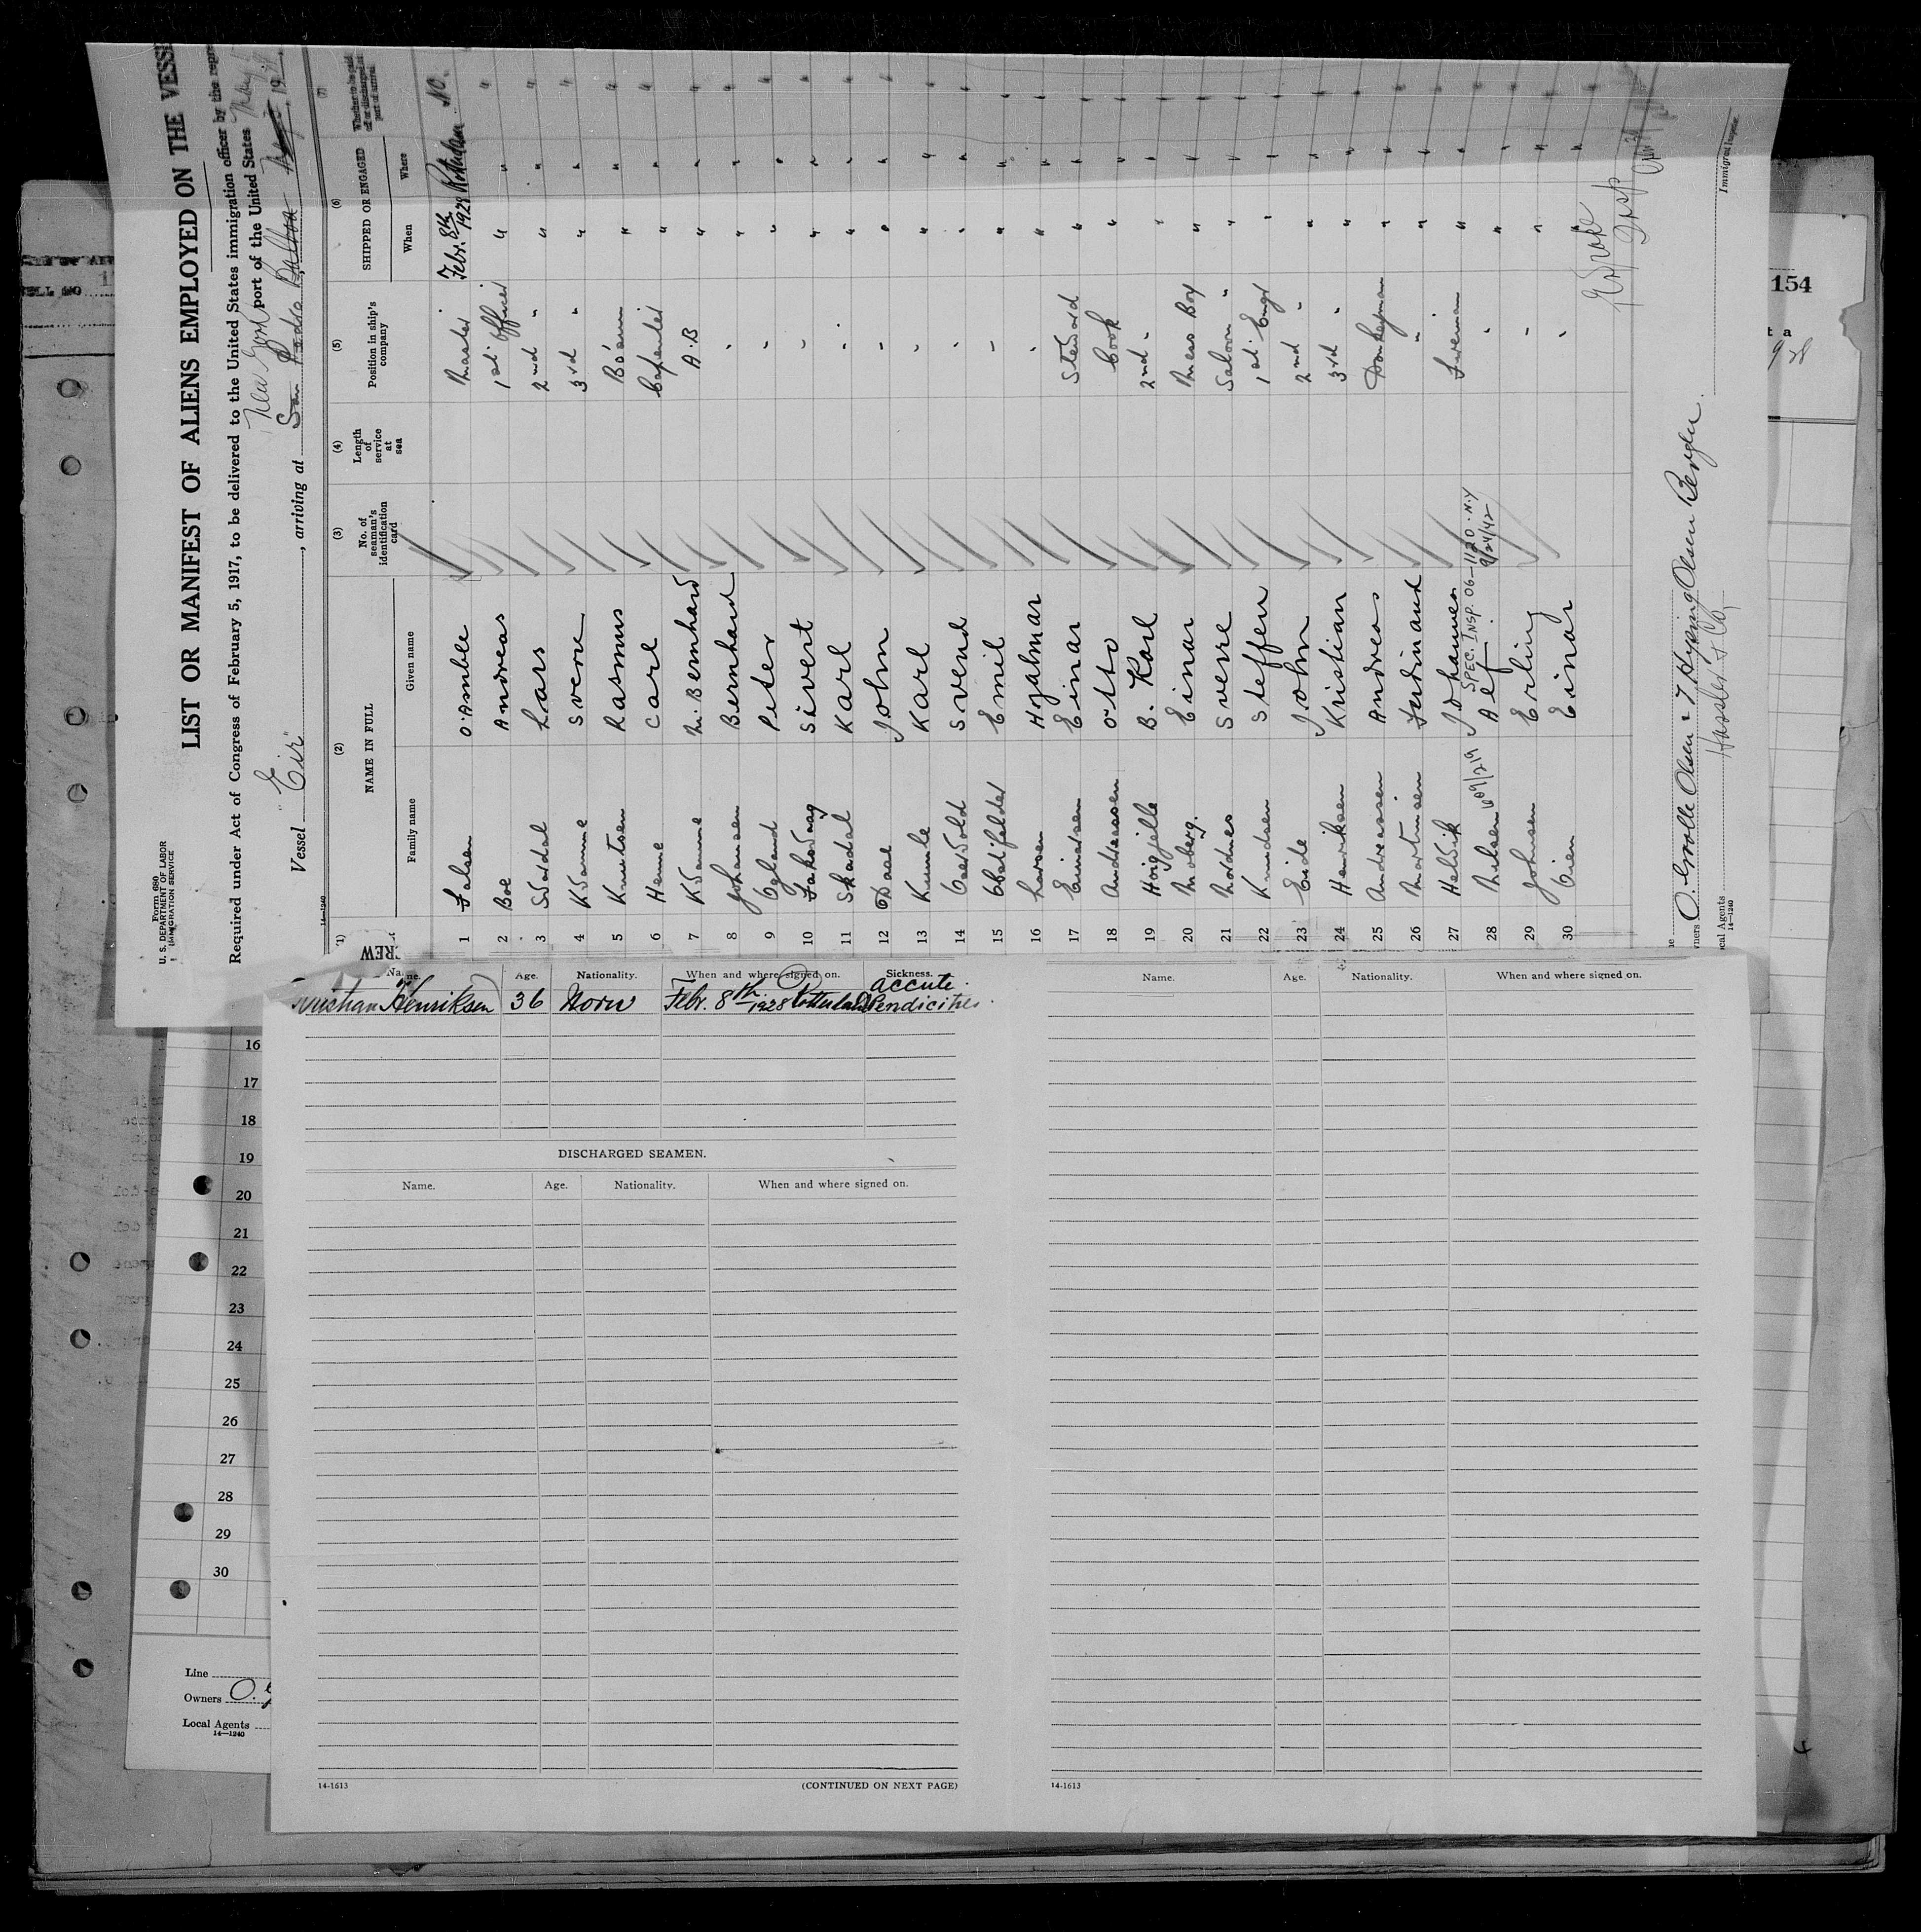 Form 680
U. S. DEPARTMENT OF LABOR
IMMIGRATION SERVICE
LIST OR MANIFEST OF ALIENS EMPLOYED ON THE VESSE
Required under Act of Congress of February 5, 1917, to be delivered to the United States immigration officer by the repre
New York port of the United States
Vessel "Eir", arriving at San Pedro Balboa, 19
14—1240
(1) (2) (3) (4) (5) (6) (7)
NAME IN FULL
Family name Given name
No. of seaman's identification card
Length of service at sea
Position in ship's company
SHIPPED OR ENGAGED
When Where
Whether to be paid off or discharged at port of arrival
1 Falsen O. Amble Master Febr. 8th 1928 Rotterdam NO.
2 Boe Andreas 1st Officer " " "
3 Svardal Lars 2nd " " " "
4 Kvamme Sverre 3rd " " " "
5 Knutsen Rasmus Bo'sun " " "
6 Henne Carl Carpenter " " "
7 Kvamme M. Bernhard A.B " " "
8 Johansen Bernhard " " " "
9 Peter " " " "
10 Sivert " " " "
11 Skadal Karl " " " "
12 Daae John " " " "
13 Kumle Karl " " " "
14 Svend " " " "
15 Emil " " " "
16 Larsen Hjalmar " " " "
17 Einarsen Einar Steward " " "
18 Andreassen Otto Cook " " "
19 Hoigjelle B. Karl 2nd " " " "
20 Moberg. Einar Mess Boy " " "
21 Nordnes Sverre Saloon " " " "
22 Knudsen Steffen 1st Engr " " "
23 Eide John 2nd " " " "
24 Henriksen Kristian 3rd " " " "
25 Andreassen Andreas Donkeyman " " "
26 Martinsen Ferdinand " " " "
27 Helvik Johannes Fireman " " "
SPEC. INSP. 06—1120 · N.Y
28 Nilsen Alf " " " "
9/24/42
29 Johnsen Erling " " " "
30 Eien Einar " " " "
Owners O. Grolle Olsen & I. Hysing Olsen Bergen.
Local Agents Hassler & Co,
14—1240
Immigrant Inspector.
154
CREW
Name. Age. Nationality. When and where signed on. Sickness.
Henriksen 36 Norw Febr. 8th 1928 Rotterdam accute Apendicities
DISCHARGED SEAMEN.
Name. Age. Nationality. When and where signed on.
14-1613 (CONTINUED ON NEXT PAGE)
Name. Age. Nationality. When and where signed on.
14-1613
16
17
18
19
20
21
22
23
24
25
26
27
28
29
30
Line
Owners O.
Local Agents
14—1240